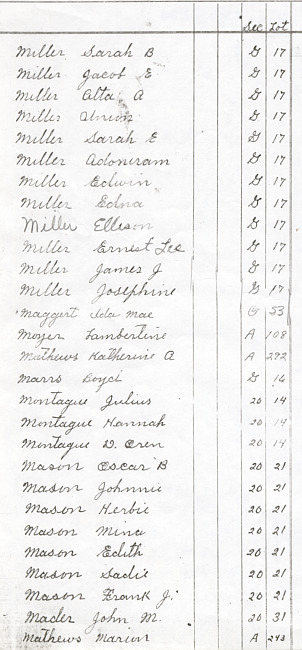 Sec Lot
Miller Sarah B G 17
Miller Jacob E G 17
Miller Alta A G 17
Miller G 17
Miller Sarah E G 17
Miller Adoniram G 17
Miller Edwin G 17
Miller Edna G 17
Miller Ellison G 17
Miller Ernest Lee G 17
Miller James J G 17
Miller Josephine G 17
Maggert Ida Mae G 53
Moyer Lambertine A 108
Mathews Katherine A A 292
Marrs Boyd G 16
Montague Julius 20 14
Montague Hannah 20 14
Montague D. Oren 20 14
Mason Oscar B 20 21
Mason Johnnie 20 21
Mason Herbie 20 21
Mason Mina 20 21
Mason Edith 20 21
Mason Sadie 20 21
Mason Frank J. 20 21
Mader John M. 20 31
Mathews Marion A 243